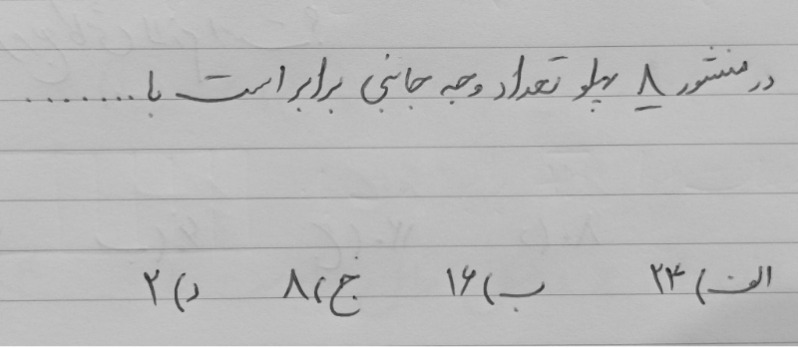 در منشور ۸ پهلو تعداد وجه جانبی برابر است با ........
الف) ۲۴ ب) ۱۶ ج) ۸ د) ۲